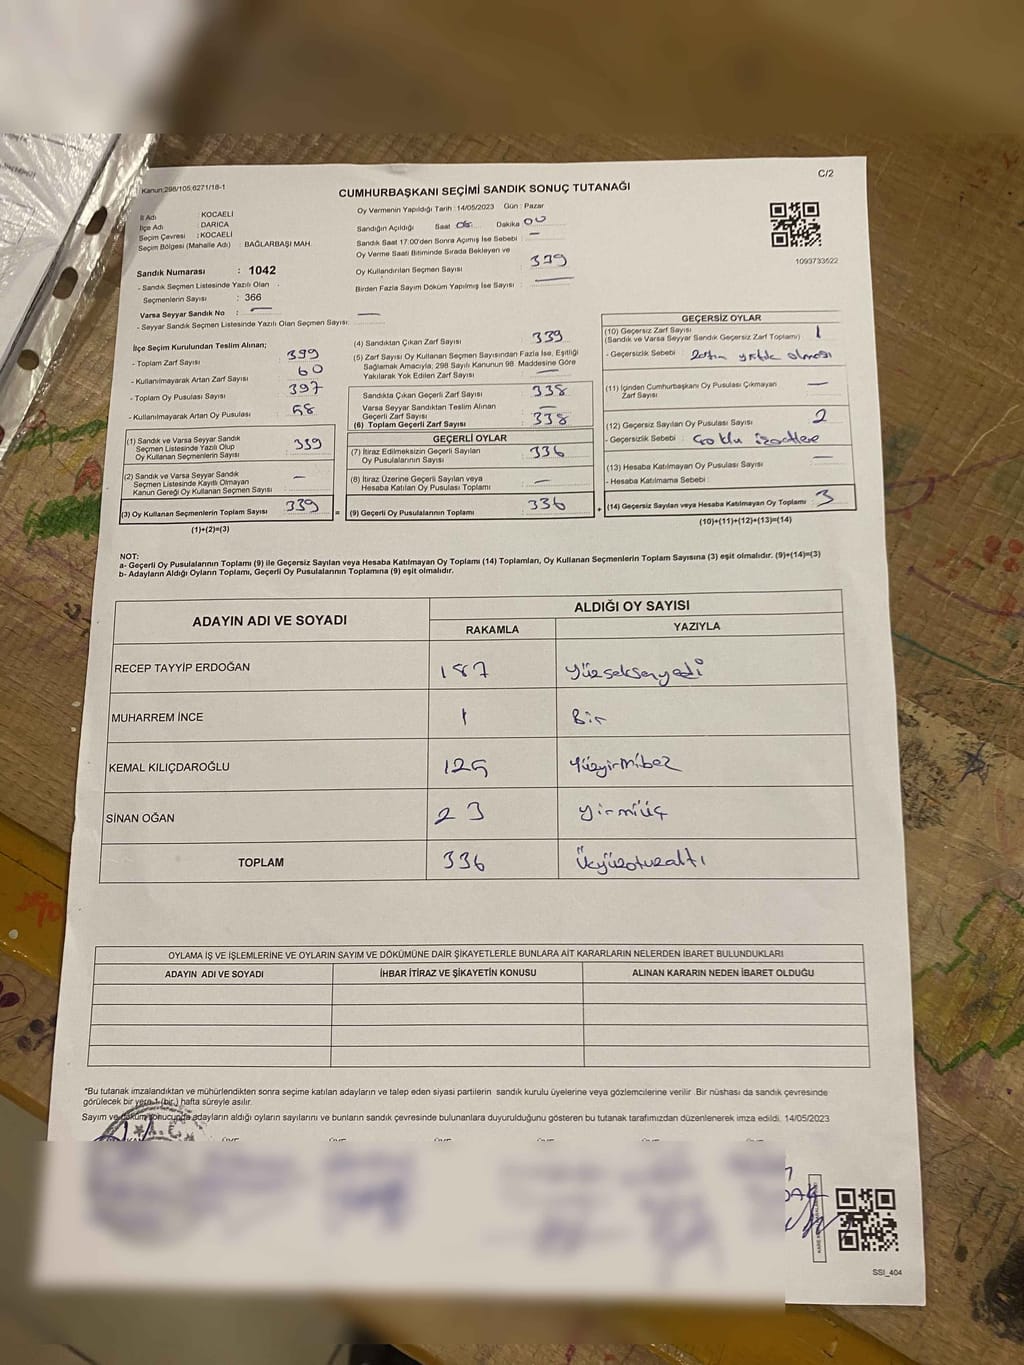 Kanun:298/105;6271/18-1
C/2
CUMHURBAŞKANI SEÇİMİ SANDIK SONUÇ TUTANAĞI
İl Adı : KOCAELİ
İlçe Adı : DARICA
Seçim Çevresi : KOCAELİ
Seçim Bölgesi (Mahalle Adı) : BAĞLARBAŞI MAH.
Sandık Numarası : 1042
- Sandık Seçmen Listesinde Yazılı Olan
Seçmenlerin Sayısı : 366
Varsa Seyyar Sandık No : —
- Seyyar Sandık Seçmen Listesinde Yazılı Olan Seçmen Sayısı: —
Oy Vermenin Yapıldığı Tarih :14/05/2023 Gün : Pazar
Sandığın Açıldığı Saat 08 Dakika 00
Sandık Saat 17.00'den Sonra Açılmış İse Sebebi : —
Oy Verme Saati Bitiminde Sırada Bekleyen ve
Oy Kullandırılan Seçmen Sayısı : 339
Birden Fazla Sayım Döküm Yapılmış İse Sayısı : —
1093733622
İlçe Seçim Kurulundan Teslim Alınan;
- Toplam Zarf Sayısı : 399
- Kullanılmayarak Artan Zarf Sayısı : 60
- Toplam Oy Pusulası Sayısı : 397
- Kullanılmayarak Artan Oy Pusulası : 58
(1) Sandık ve Varsa Seyyar Sandık
Seçmen Listesinde Yazılı Olup
Oy Kullanan Seçmenlerin Sayısı : 339
(2) Sandık ve Varsa Seyyar Sandık
Seçmen Listesinde Kayıtlı Olmayan
Kanun Gereği Oy Kullanan Seçmen Sayısı : —
(3) Oy Kullanan Seçmenlerin Toplam Sayısı : 339
(1)+(2)=(3)
(4) Sandıktan Çıkan Zarf Sayısı : 339
(5) Zarf Sayısı Oy Kullanan Seçmen Sayısından Fazla İse, Eşitliği
Sağlamak Amacıyla; 298 Sayılı Kanunun 98. Maddesine Göre
Yakılarak Yok Edilen Zarf Sayısı : —
Sandıkta Çıkan Geçerli Zarf Sayısı : 338
Varsa Seyyar Sandıktan Teslim Alınan
Geçerli Zarf Sayısı : —
(6) Toplam Geçerli Zarf Sayısı : 338
GEÇERLİ OYLAR
(7) İtiraz Edilmeksizin Geçerli Sayılan
Oy Pusulalarının Sayısı : 336
(8) İtiraz Üzerine Geçerli Sayılan veya
Hesaba Katılan Oy Pusulası Toplamı : —
= (9) Geçerli Oy Pusulalarının Toplamı : 336
GEÇERSİZ OYLAR
(10) Geçersiz Zarf Sayısı
(Sandık ve Varsa Seyyar Sandık Geçersiz Zarf Toplamı) : 1
- Geçersizlik Sebebi : Zarfın yırtık olması
(11) İçinden Cumhurbaşkanı Oy Pusulası Çıkmayan
Zarf Sayısı : —
(12) Geçersiz Sayılan Oy Pusulası Sayısı : 2
- Geçersizlik Sebebi :
(13) Hesaba Katılmayan Oy Pusulası Sayısı : —
- Hesaba Katılmama Sebebi :
+ (14) Geçersiz Sayılan veya Hesaba Katılmayan Oy Toplamı : 3
(10)+(11)+(12)+(13)=(14)
NOT:
a- Geçerli Oy Pusulalarının Toplamı (9) ile Geçersiz Sayılan veya Hesaba Katılmayan Oy Toplamı (14) Toplamları, Oy Kullanan Seçmenlerin Toplam Sayısına (3) eşit olmalıdır. (9)+(14)=(3)
b- Adayların Aldığı Oyların Toplamı, Geçerli Oy Pusulalarının Toplamına (9) eşit olmalıdır.
ADAYIN ADI VE SOYADI
ALDIĞI OY SAYISI
RAKAMLA YAZIYLA
RECEP TAYYİP ERDOĞAN 187 yüzseksenyedi
MUHARREM İNCE 1 Bir
KEMAL KILIÇDAROĞLU 125 Yüzyirmibeş
SİNAN OĞAN 23 yirmiüç
TOPLAM 336 Üçyüzotuzaltı
OYLAMA İŞ VE İŞLEMLERİNE VE OYLARIN SAYIM VE DÖKÜMÜNE DAİR ŞİKAYETLERLE BUNLARA AİT KARARLARIN NELERDEN İBARET BULUNDUKLARI
ADAYIN ADI VE SOYADI İHBAR İTİRAZ VE ŞİKAYETİN KONUSU ALINAN KARARIN NEDEN İBARET OLDUĞU
*Bu tutanak imzalandıktan ve mühürlendikten sonra seçime katılan adayların ve talep eden siyasi partilerin sandık kurulu üyelerine veya gözlemcilerine verilir. Bir nüshası da sandık çevresinde
görülecek bir yere 1 (bir) hafta süreyle asılır.
Sayım ve döküm sonucunda adayların aldığı oyların sayılarını ve bunların sandık çevresinde bulunanlara duyurulduğunu gösteren bu tutanak tarafımızdan düzenlenerek imza edildi. 14/05/2023
SSI_404